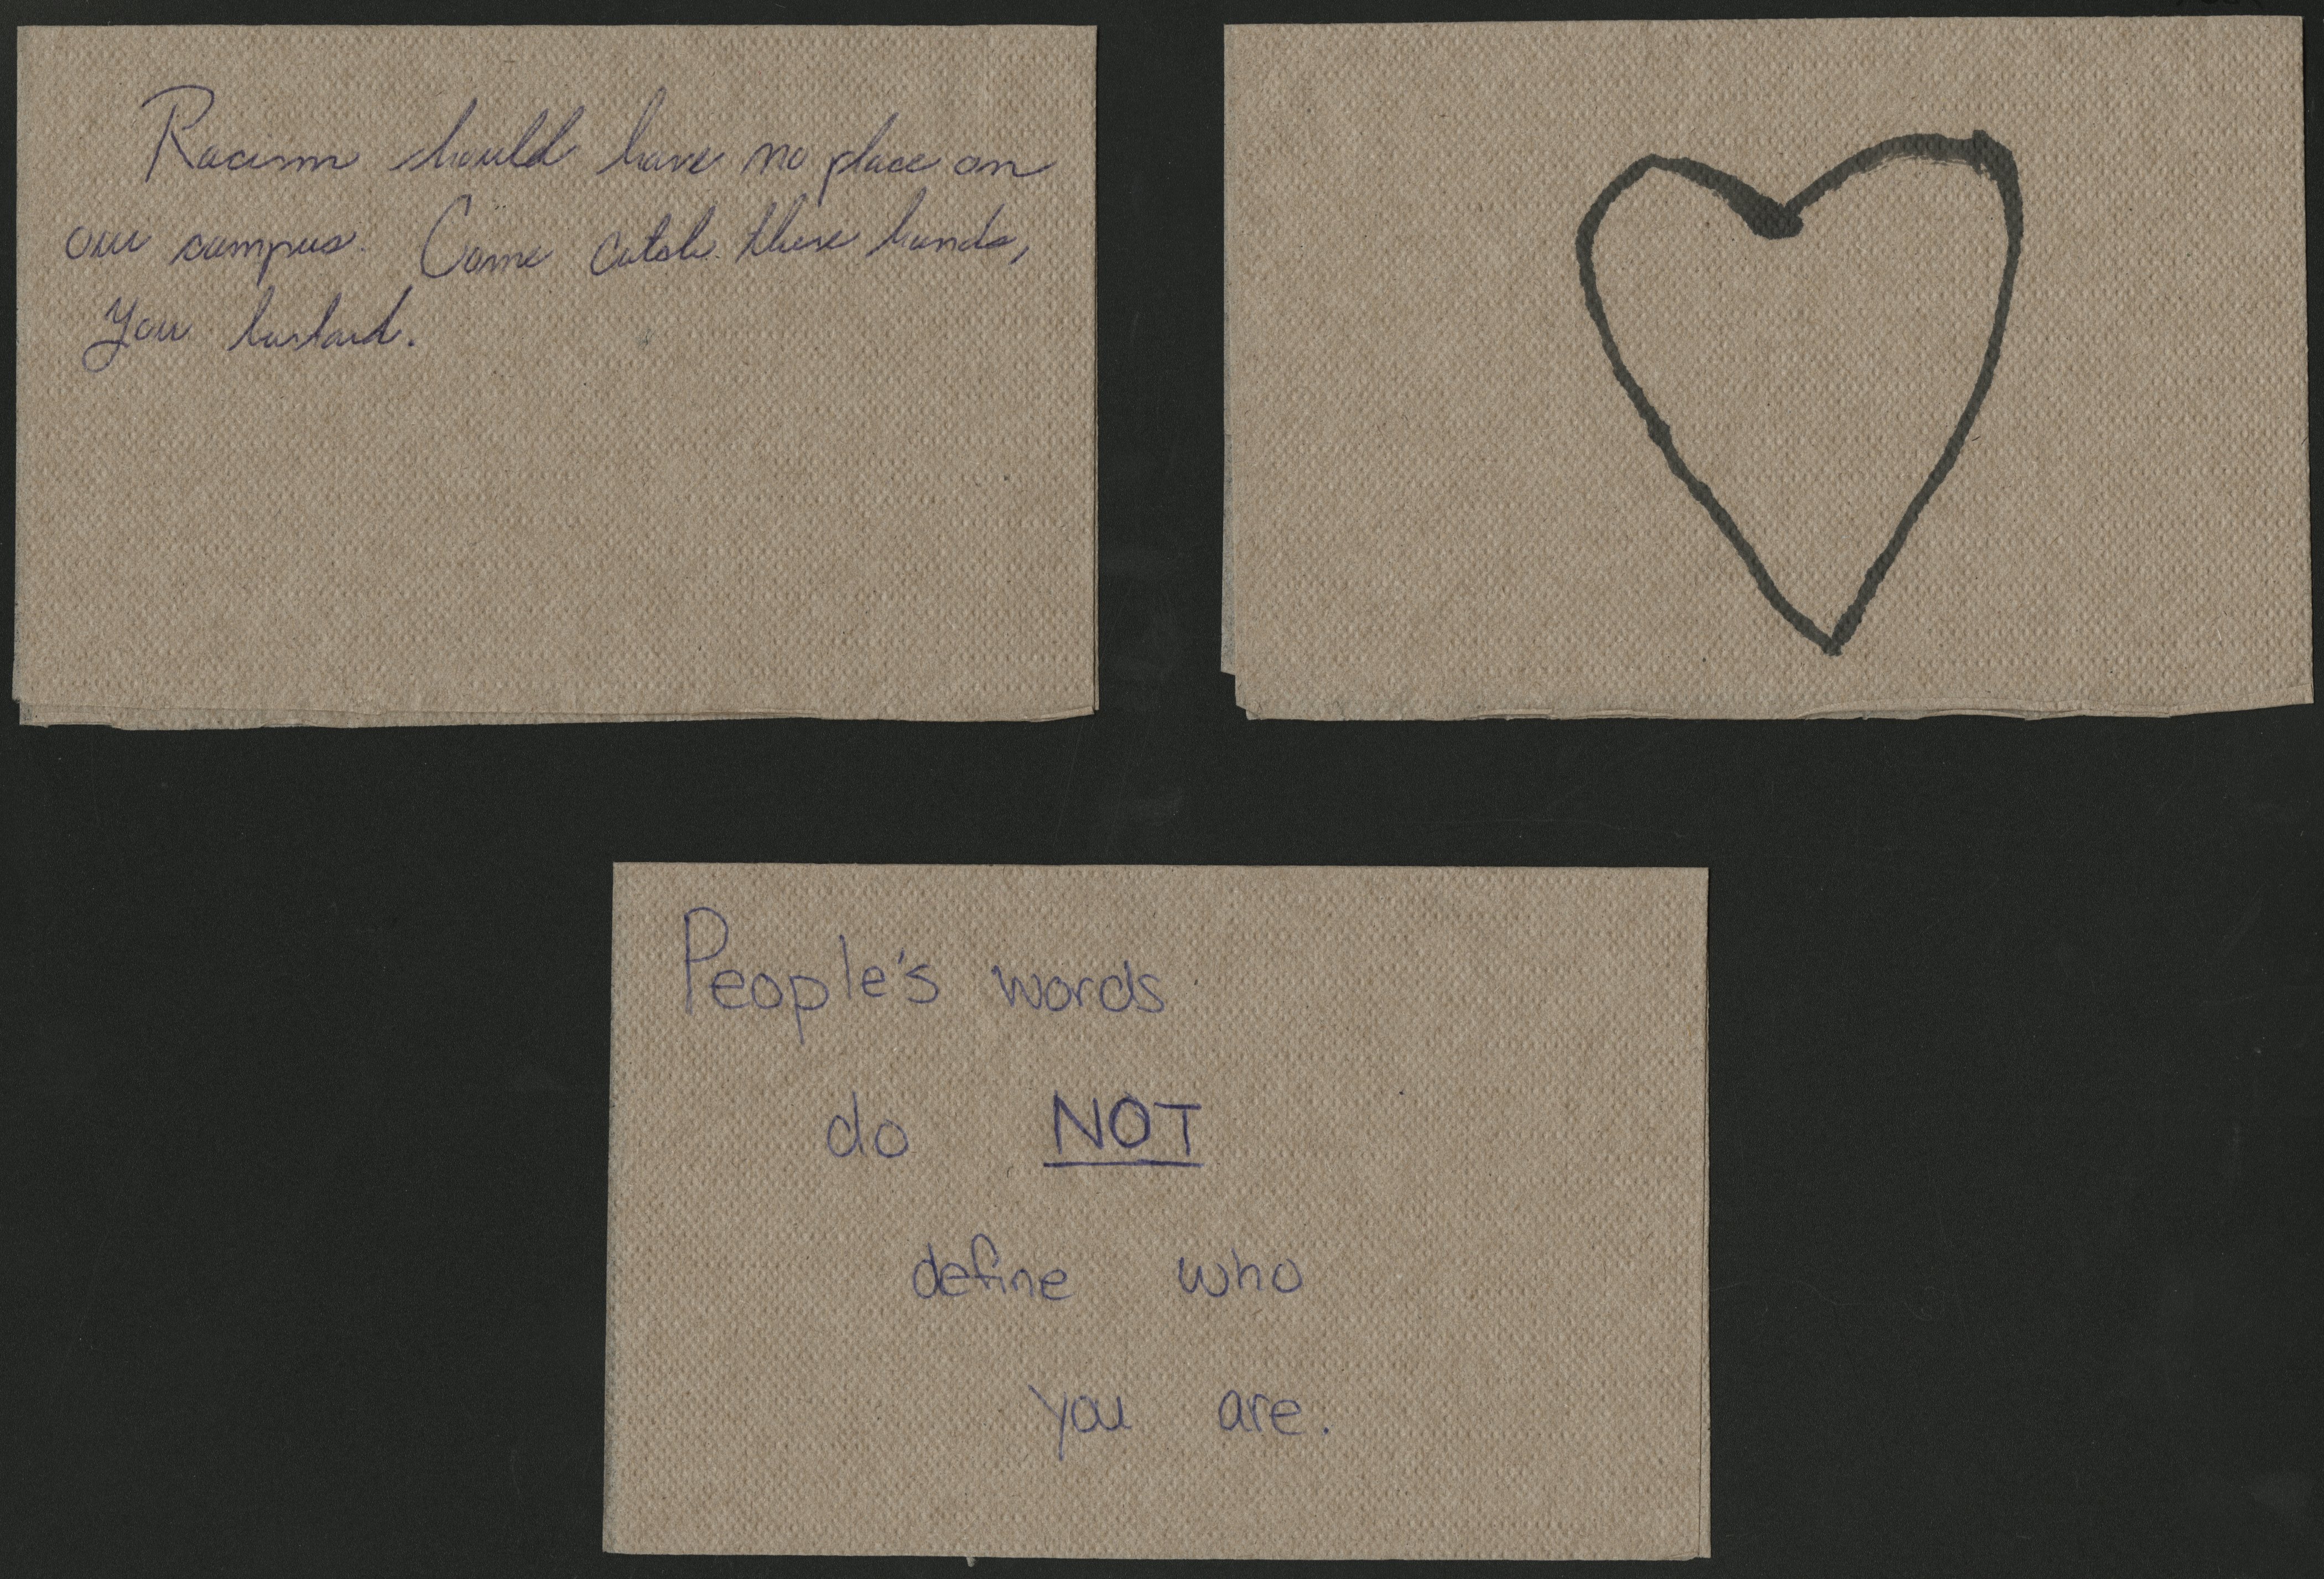 Racism should have no place on
our campus. Come catch these hands,
you bastard.
People's words
do NOT
define who
you are.